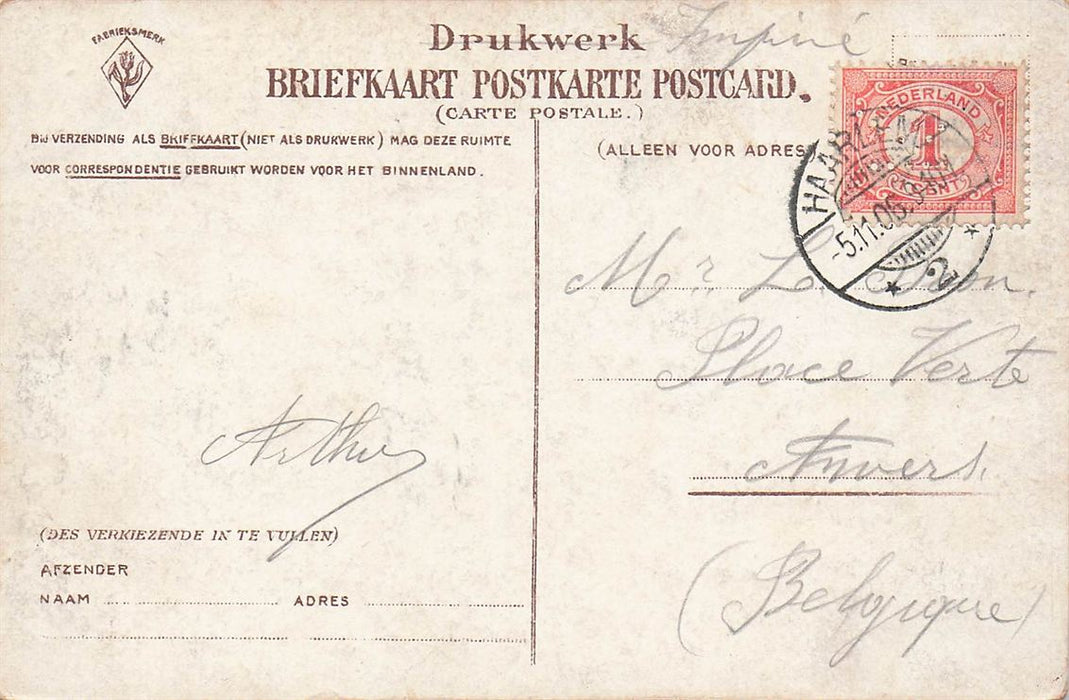 FABRIEKSMERK
Drukwerk Imprimé
BRIEFKAART POSTKARTE POSTCARD.
(CARTE POSTALE.)
BIJ VERZENDING ALS BRIEFKAART (NIET ALS DRUKWERK) MAG DEZE RUIMTE
VOOR CORRESPONDENTIE GEBRUIKT WORDEN VOOR HET BINNENLAND.
(ALLEEN VOOR ADRES
NEDERLAND
1
CENT
HAARLEM
-5.11.06.
2
Mr L.
Place Verte
Anvers.
(Belgique)
Arthur
(DES VERKIEZENDE IN TE VULLEN)
AFZENDER
NAAM ADRES